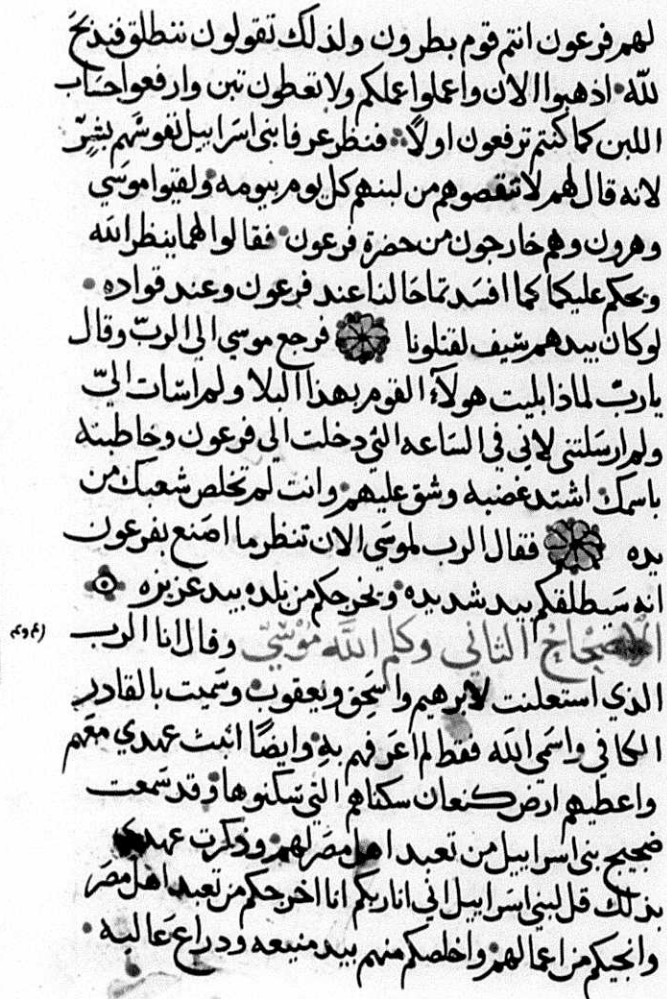 لهم فرعون انتم قوم بطرون ولذلك تقولون ننطلق فنذبح
لله اذهبوا الان واعملوا عملكم ولا تعطون تبن وارفعوا حساب
اللبن كما كنتم ترفعون اولاً فنظر عرفا بنى اسراييل نفوسهم بشرّ
لانه قال لهم لا تنقصوهم من لبنهم كل يوم بيومه ولقيوا موسي
وهرون وهم خارجون من حضرة فرعون فقالوا لهما ينظر الله
ويحكم عليكما كما افسدتما حالنا عند فرعون وعند قواده
لوكان بيدهم سيف لقتلونا فرجع موسي الي الربّ وقال
يارب لماذا بليت هولآء القوم بهذا البلا ولم اسات اليّ
ولم ارسلتنى لاني في الساعه التي دخلت الي فرعون وخاطبته
باسمك اشتد غضبه وشق عليهم وانت لم تخلص شعبك من
يده فقال الرب لموسي الان تنظر ما اصنع بفرعون
انه سيطلقكم بيد شديده ويخرجكم من بلده بيد عزيزه
الاصحاح الثاني وكلم الله موسي وقال انا الرب
الذي استعلنت لابرهيم واسحق ويعقوب وسميت بالقادر
الكافي واسمي الله فقط لم اعرفهم به وايضًا اثبت عهدي معهم
واعطيهم ارض كنعان سكناهم التي سكنوها وقد سمعت
ضجيج بنى اسراييل من تعبد اهل مصر لهم وذكرت عهدي
بذلك قل لبني اسراييل اني انا ربكم انا اخرجكم من تعبد اهل مصر
وانجيكم من اعمالهم واخلصكم منهم بيد منيعه ودراع عاليه